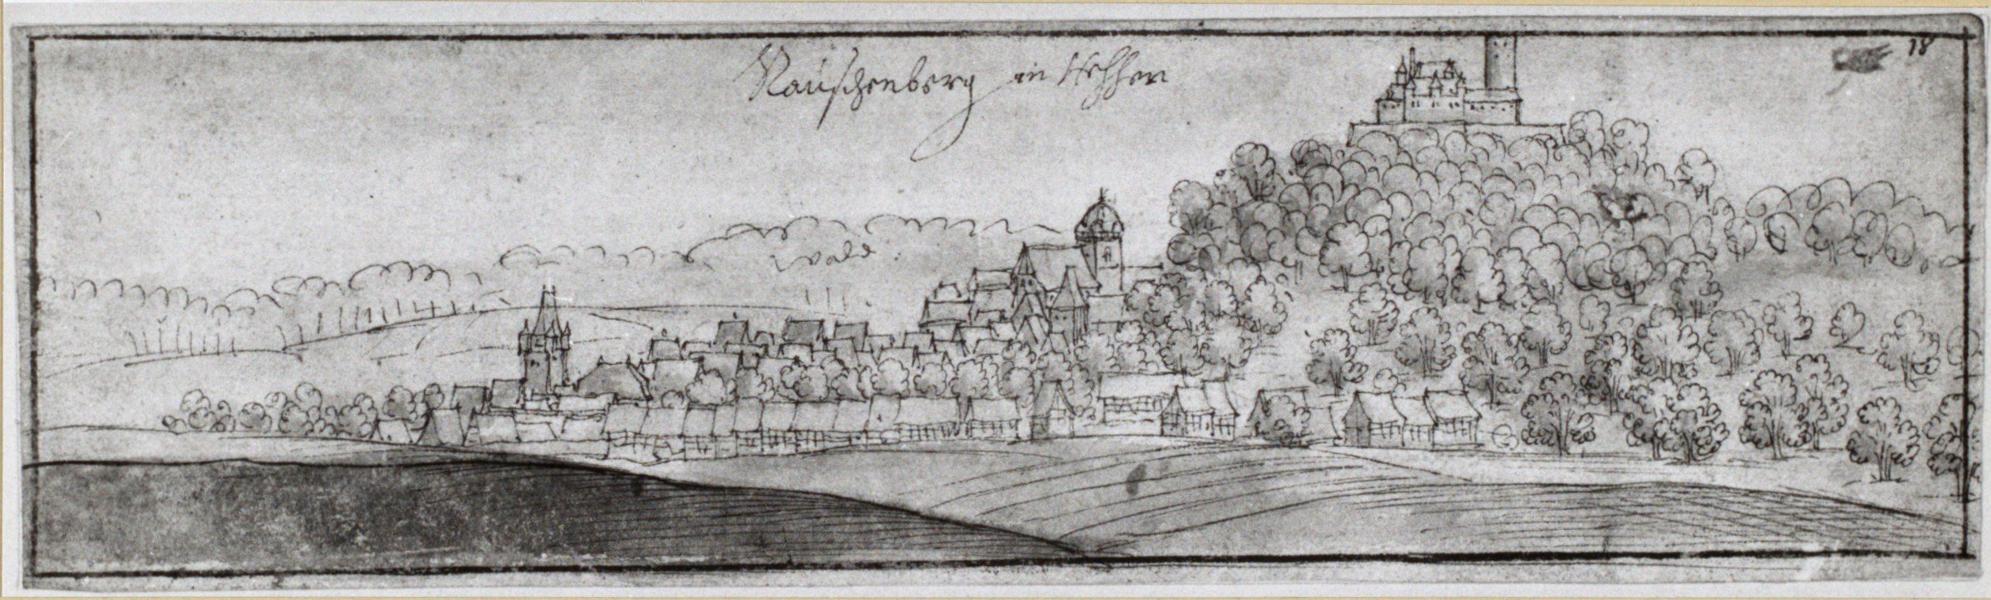 Rauschenberg in Hessen
18
Wald